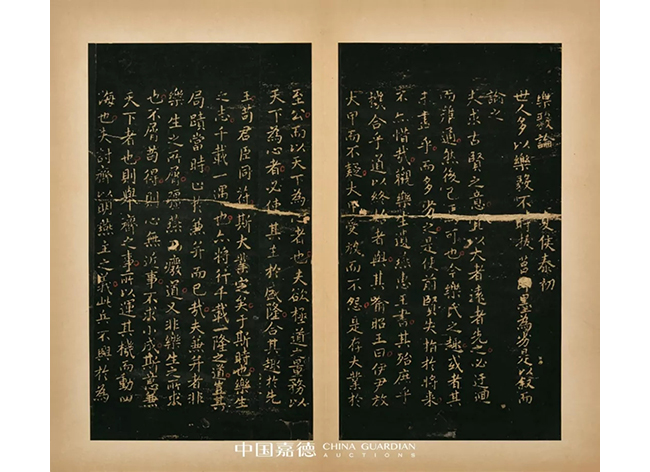 樂毅論 夏侯泰初
世人多以樂毅不時拔莒即墨為劣是以敘而
論之
夫求古賢之意宜以大者遠者先之必迂迴
而難通然後已焉可也今樂氏之趣或者其
未盡乎而多劣之是使前賢失指於將來
不亦惜哉觀樂生遺燕惠王書其殆庶乎
機合乎道以終始者與其喻昭王曰伊尹放
大甲而不疑大甲受放而不怨是存大業於
至公而以天下為心者也夫欲極道之量務以
天下為心者必致其主於盛隆合其趣於先
王苟君臣同符斯大業定矣于斯時也樂生
之志千載一遇也亦將行千載一隆之道豈其
局蹟當時止於兼并而已哉夫兼并者非
樂生之所屑彊燕而廢道又非樂生之所求
也不屑苟得則心無近事不求小成斯意兼
天下者也則舉齊之事所以運其機而動四
海也夫討齊以明燕主之義此兵不興於為
中国嘉德 CHINA GUARDIAN AUCTIONS